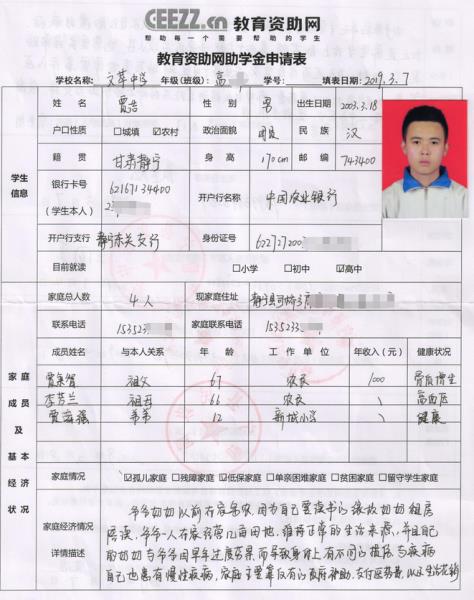 CEEZZ.cn 教育资助网
帮助每一个需要帮助的学生
教育资助网助学金申请表
学校名称: 文萃中学 年级(班级): 高 学号: 填表日期: 2019.3.7
学生信息
姓名 贾浩 性别 男 出生日期 2003.3.18
户口性质 □城填 ☑农村 政治面貌 团员 民族 汉
籍贯 甘肃静宁 身高 170cm 邮编 743400
银行卡号 (学生本人) 6216713440 开户行名称 中国农业银行
开户行支行 静宁东关支行 身份证号 622727200
目前就读 □小学 □初中 ☑高中
家庭成员及基本经济状况
家庭总人数 4人 现家庭住址 静宁县
联系电话 1535233 家庭联系电话 1535233
成员姓名 与本人关系 年龄 工作单位 年收入(元) 健康状况
祖父 67 农民 1000 骨质增生
李芳兰 祖母 66 农民 \ 高血压
弟弟 12 新城小学 \ 健康
家庭情况 ☑孤儿家庭 □残障家庭 ☑低保家庭 □单亲困难家庭 □贫困家庭 □留守学生家庭
家庭经济情况详情描述
爷爷奶奶以前在家务农,因为自己要读书的缘故奶奶租房
陪读,爷爷一人在家经营几亩田地,维持正常的生活来源,并且自己
的奶奶与爷爷因早年过度劳累而导致身体上有不同的损伤与疾病
自己也患有慢性疾病,家庭主要靠仅有的政府补助,支付医药费,以及生活花销